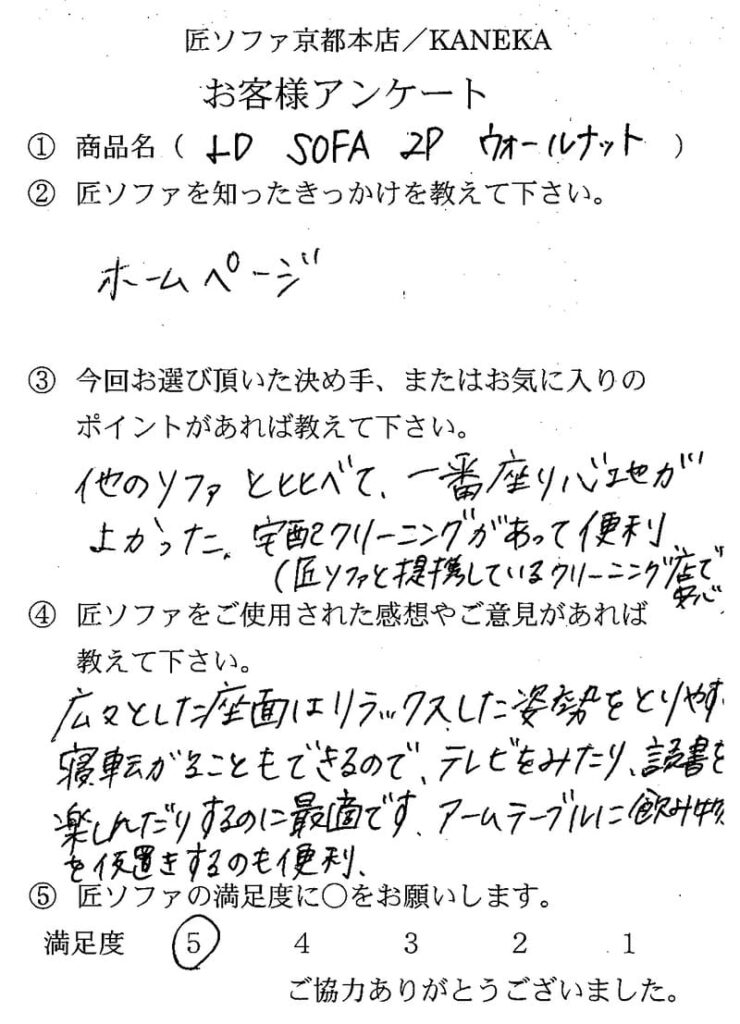 匠ソファ京都本店/KANEKA
お客様アンケート
① 商品名( LD SOFA 2P ウォールナット )
② 匠ソファを知ったきっかけを教えて下さい。
ホームページ
③ 今回お選び頂いた決め手、またはお気に入りの
ポイントがあれば教えて下さい。
他のソファとヒヒべて、一番座り心地が
よかった。宅配クリーニングがあって便利
(匠ソファと提携しているクリーニング店で
安心
④ 匠ソファをご使用された感想やご意見があれば
教えて下さい。
広々とした座面はリラックスした姿勢をとりやす
寝転がることもできるので、テレビをみたり、読書を
楽しんだりするのに最適です。アームテーブルに飲み物
を仮置きするのも便利、
⑤ 匠ソファの満足度に○をお願いします。
満足度 5 4 3 2 1
ご協力ありがとうございました。